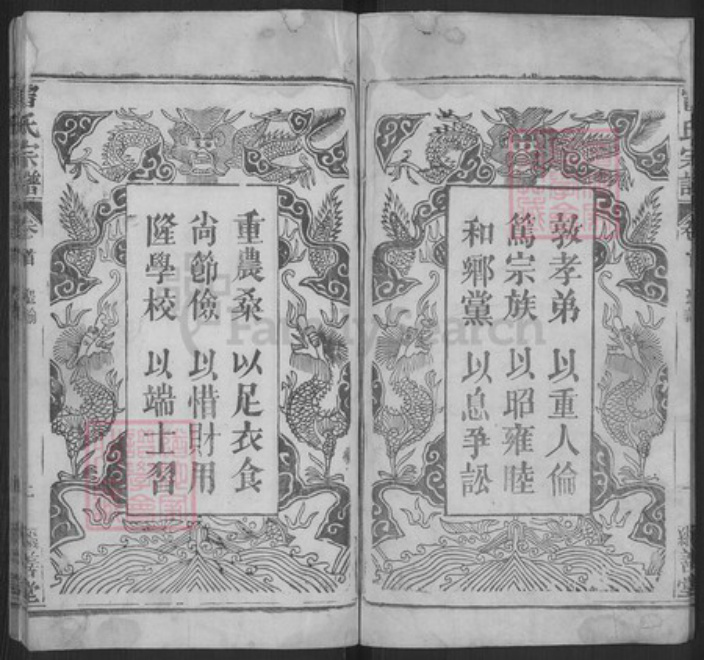 敦孝弟以重人倫
篤宗族以昭雍睦
和鄉黨以息爭訟
重農桑以足衣食
尙節儉以惜財用
隆學校以端士習
氏宗譜
卷首
善堂
FamilySearch